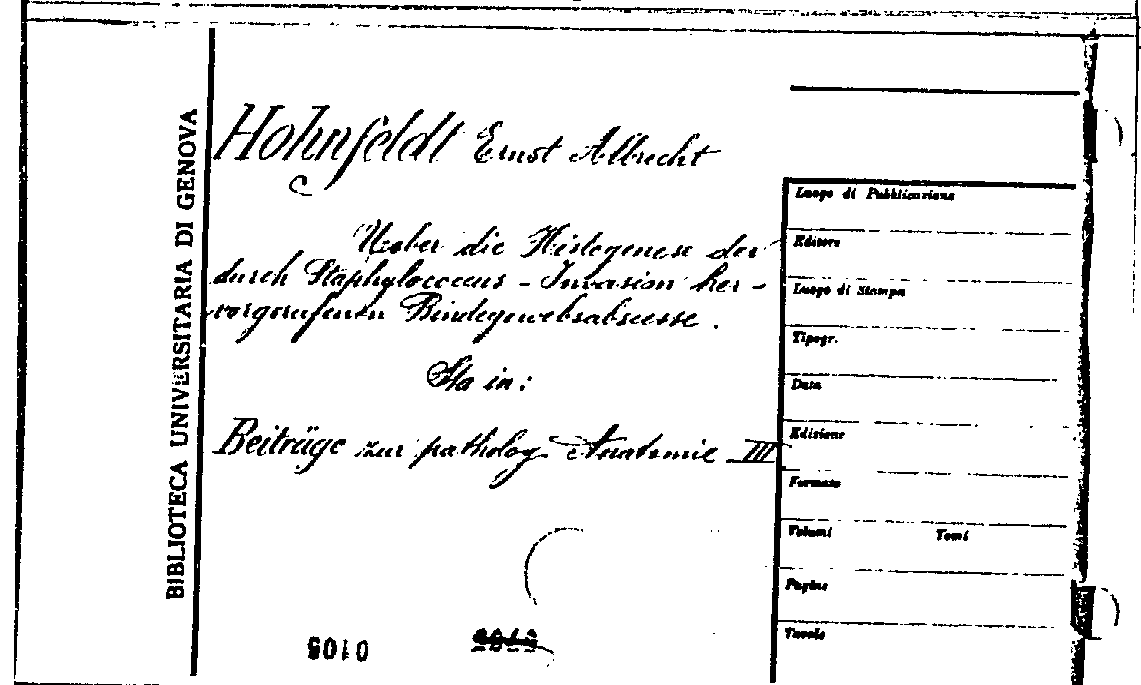 BIBLIOTECA UNIVERSITARIA DI GENOVA
Hohnfeldt Ernst Albrecht
Ueber die Histogenese der
durch Staphylococcus - Invasion her-
vorgerufenen Bindegewebsabscesse.
Sta in:
Beiträge zur patholog. Anatomie III
Luogo di Pubblicazione
Editore
Luogo di Stampa
Tipogr.
Data
Edizione
Formato
Volumi Tomi
Pagine
Tavole
0105